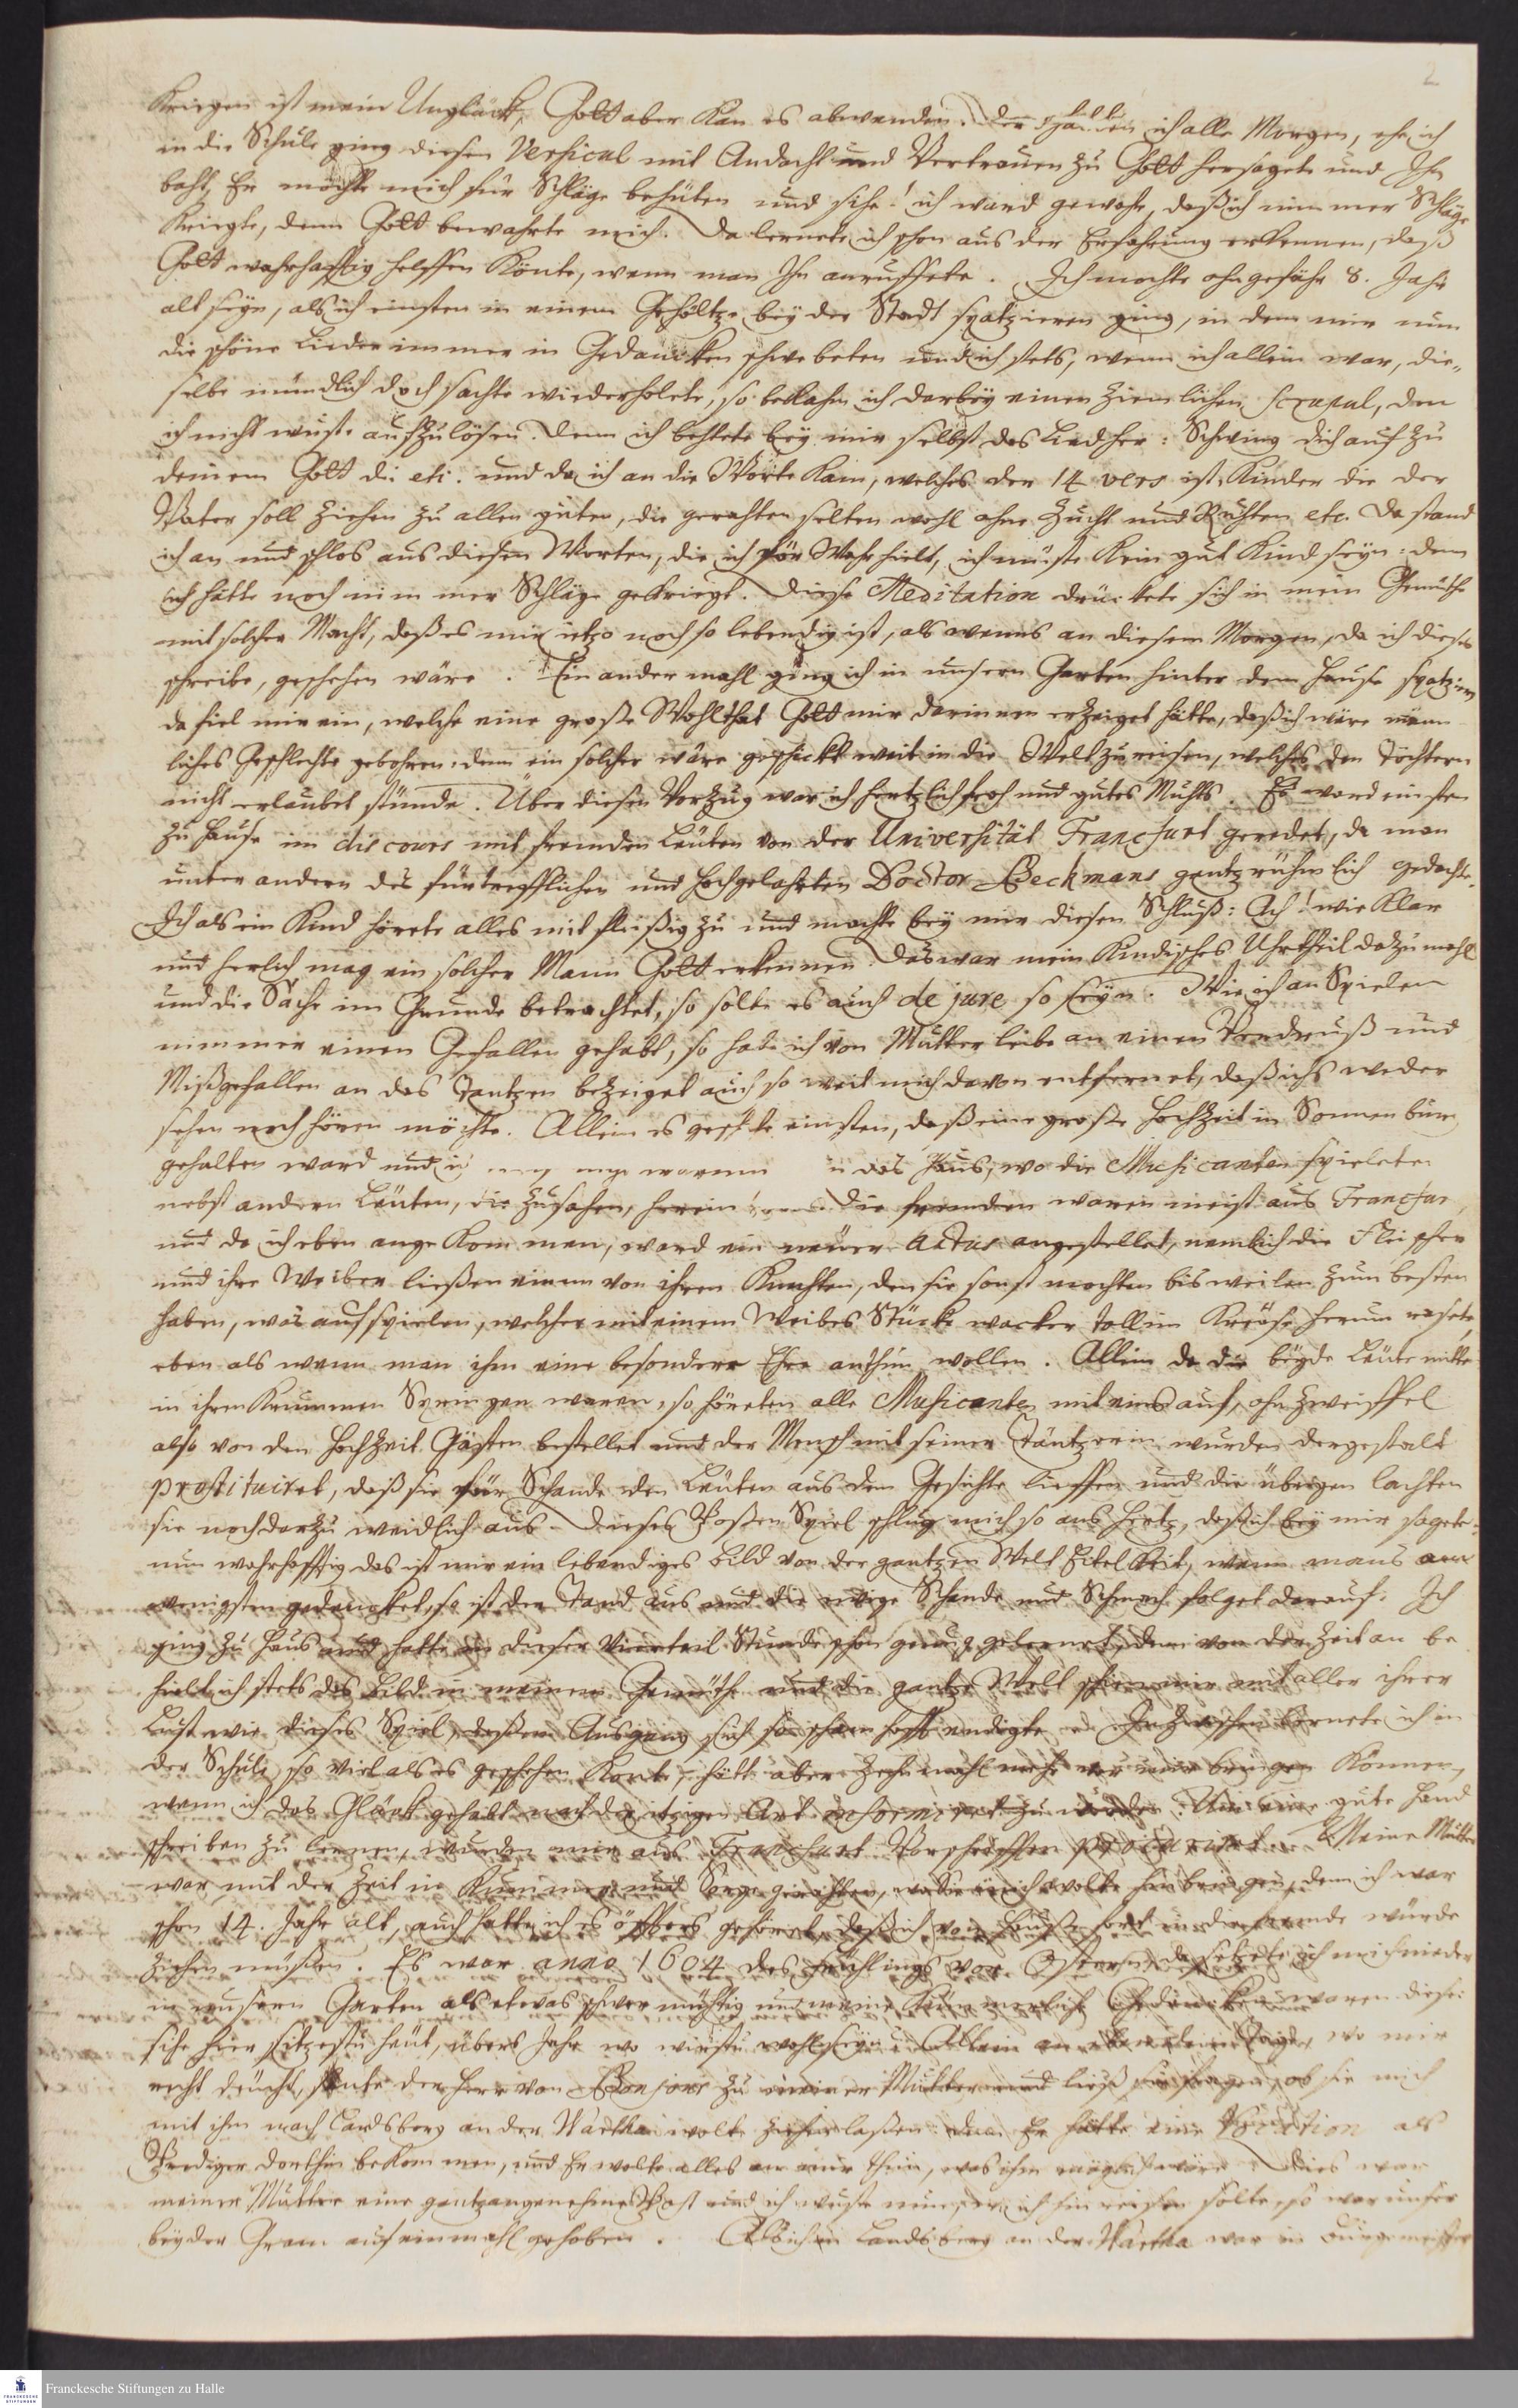 2
Kriegen ist mein Unglück, Gott aber kan es abwenden. Der ich alle Morgen, ehe ich
in die Schule ging diesen Versicul mit Andacht und Vertrauen zu Gott hersagete und Ihn
baht, Er möchte mich für Schläge behüten und sihe! ich ward gewahr, daß ich nimmer Schläge
kriegte, denn Gott bewahrte mich. Da lernete ich schon aus der Erfahrung erkennen, daß
Gott wahrhafftig helffen könte, wenn man Ihn anruffete. Ich mochte ohngefähr 8. Jahr
alt seyn, als ich einsten in einem Gehöltze bey der Stadt spatzieren ging, in dem mir nun
die schöne Lieder immer in Gedancken schwebeten und ich stets, wenn ich allein war, die-
selbe mündlich doch sachte wiederholete, so bekahm ich darbey einen zimlichen scrupul, den
ich nicht wuste aufzulösen. Denn ich behtete bey mir selbst das Lied her: Schwing dich auf zu
deinem Gott du etc. und da ich an die Worte kam, welches der 14 vers ist, Kinder die der
Vater soll ziehen zu allen guten, die gerahten selten wohl ohne Zucht und Ruhten etc. Da stand
ich an und schlos aus diesen Worten, die ich für Wahr hielt, ich müste kein gut Kind seyn: denn
ich hätte noch nimmer Schläge gekriegt. Diese Meditation drückete sich in mein Gemüthe
mit solcher Macht, daß es mir ietzo noch so lebendig ist, als wenns an diesem Morgen, da ich dieses
schreibe, geschehen wäre. Ein ander mahl ging ich in unsern Garten hinter dem Hause spatziren
da fiel mir ein, welche eine große Wohlthat Gott mir darinnen erzeiget hätte, daß ich wäre männ-
liches Geschlechts gebohren: denn ein solcher wäre geschickt weit in die Welt zu reisen, welches den Töchtern
nicht erlaubet stünde. Über diesen Vorzug war ich hertzlich froh und gutes Muhts. Es ward einsten
zu Hause im discours mit fremden Leuten von der Universität Francfurt geredet, da man
unter andern des fürtrefflichen und hochgelahrten Doctor Beckmans gantz rühmlich gedachte.
Ich als ein Kind hörete alles mit fleißig zu und machte bey mir diesen Schluß: Ach! wie klar
und herlich mag ein solcher Mann Gott erkennen. Das war mein kindisches Uhrtheil dazumahl
und die Sache im Grunde betrachtet, so solte es auch de jure so seyn. Wie ich an Spielen
nimmer einen Gefallen gehabt, so habe ich von Mutterleibe an einen Verdruß und
Mißgefallen an das Tantzen bezeiget auch so weit mich davon entfernet, daß ichs weder
sehen noch hören mochte. Allein es geschahe einsten, daß eine große Hochzeit in Sonnenburg
gehalten ward und in das Haus, wo die Musicanten spieleten
nebst andern Leuten, die zusahen, herein Die fremden waren meist aus Francfurt,
und da ich eben angekommen, ward ein neuer Actus angestellet, nemlich die Fleischer
und ihre Weiber ließen einen von ihren Knechten, den sie sonst mochten bisweilen zum besten
haben, was aufspielen, welcher mit einem Weibes Stücke wacker toll im Kreise herum rasete,
eben als wenn man ihm eine besondere Ehre anthun wollen. Allein da die beyde Leute mitten
in ihren krummen Springen waren, so höreten alle Musicanten mit eins auf, ohn Zweiffel
also von den Hochzeit Gästen bestellet und der Mensch mit seiner Täntzerin wurden dergestalt
prostituiret, daß sie für Schande den Leuten aus dem Gesichte lieffen und die übrigen lachten
sie noch darzu weidlich aus. Dieses Possen Spiel schlug mich so ans Hertz, daß ich bey mir sagete:
nun wahrhafftig das ist mir ein lebendiges Bild von der gantzen Welt Eitelkeit, wenn mans am
wenigsten gedencket, so ist der Tand aus und die ewige Schande und Schmach folget darauf. Ich
ging zu Haus und hatte in dieser Vierteil Stunde schon genug gelernet, denn von der Zeit an be-
hielt ich stets das Bild in meinem Gemüthe und die gantze Welt schien mir mit aller ihrer
Lust wie dieses Spiel, deßen Ausgang sich so schamhafft endigte. Inzwischen lernete ich in
der Schule so viel als es geschehen konte, hätte aber zehnmahl mehr vor mir bringen können,
wenn ich das Glück gehabt nach der itzigen Art informiret zu werden. Um eine gute Hand
schreiben zu lernen, wurden mir aus Francfurt Vorschrifften procuriret. Meine Mutter
war mit der Zeit in Kummer und Sorge gerahten, wo sie mich wolte hinbringen, denn ich war
schon 14. Jahr alt, auch hatte ich es öffters gehöret, daß ich von Hause fort in die fremde würde
ziehen müßen. Es war anno 1604 des Frühlings vor Ostern, da setzete ich mich nieder
in unsern Garten als etwas schwermühtig und meine kümmerliche Gedancken waren diese:
sihe hier sitzestu heut, übers Jahr wo wirstu wohl seyn? Allein an eben dem Tage, wo mir
recht deucht, schickte der Herr von Bonjour zu meiner Mutter und ließ sie fragen, ob sie mich
mit ihm nach Landsberg an der Wartha wolte ziehen laßen: denn Er hätte eine Vocation als
Prediger dorthin bekommen, und Er wolte alles an mir thun, was ihm möglich wäre. Dies war
meiner Mutter eine gantz angenehme Post und ich wuste nun, wo ich hin reisen solte, so war unser
beyder Gram auf einmahl gehoben. Als ich in Landsberg an der Wartha war in Burgemeister
Franckesche Stiftungen zu Halle